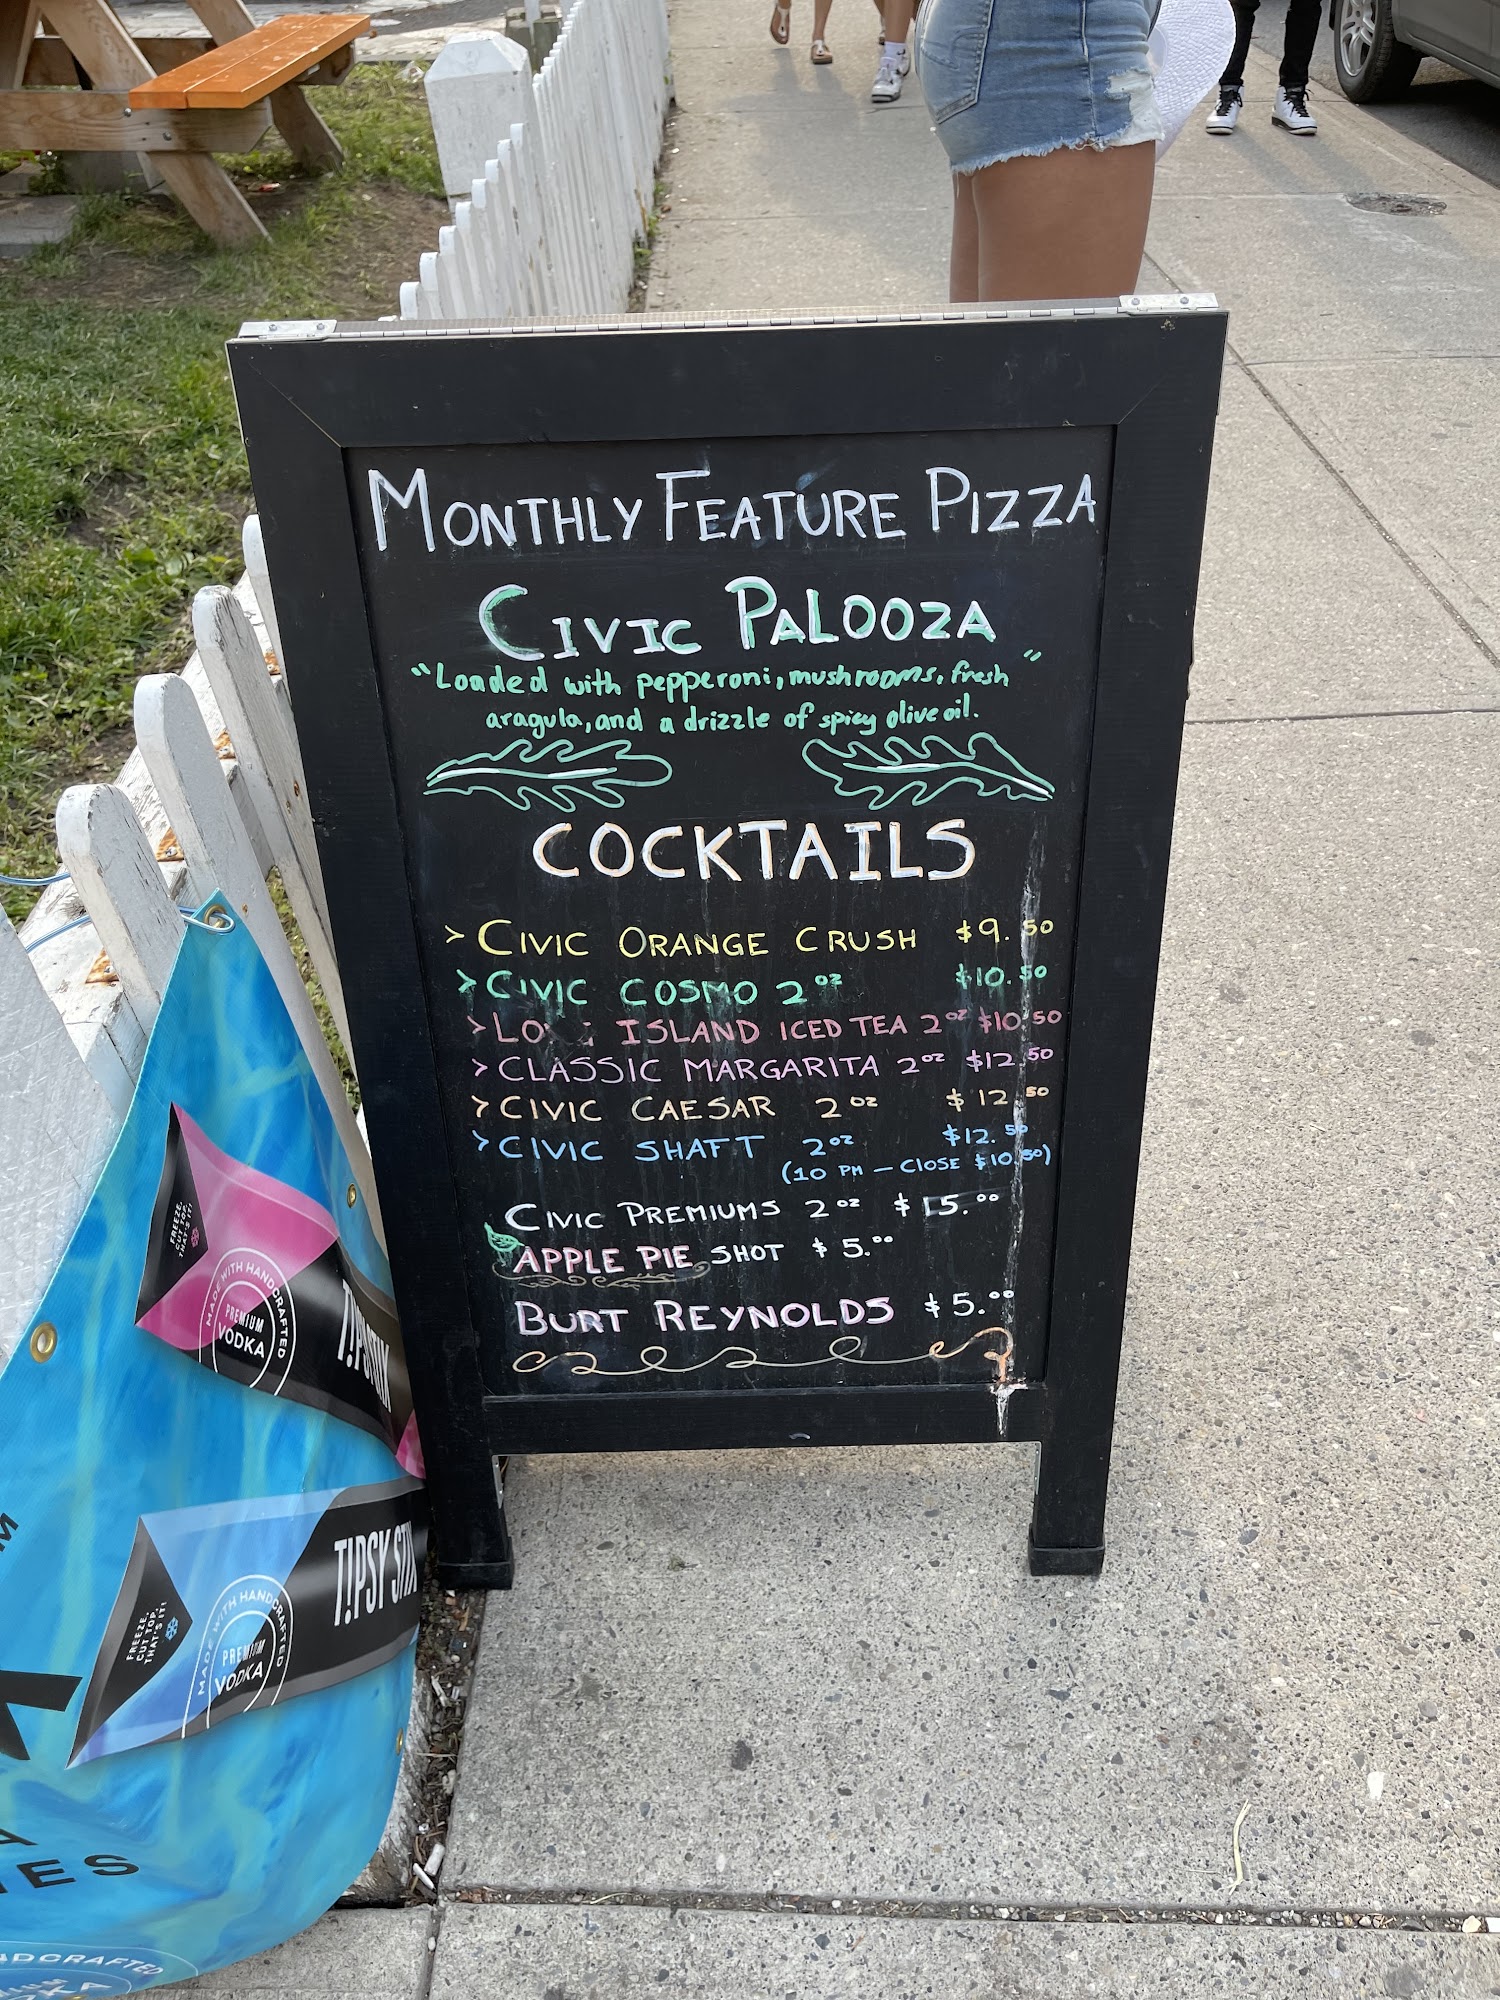 MONTHLY FEATURE PIZZA
CIVIC PALOOZA
"Loaded with pepperoni, mushrooms, fresh"
aragula, and a drizzle of spicy olive oil.
COCKTAILS
> CIVIC ORANGE CRUSH $9.50
> CIVIC COSMO 2oz $10.50
> ISLAND ICED TEA 2oz $10.50
> CLASSIC MARGARITA 2oz $12.50
> CIVIC CAESAR 2oz $12.50
> CIVIC SHAFT 2oz $12.50
(10 PM - CLOSE $10.50)
CIVIC PREMIUMS 2oz $15.00
APPLE PIE SHOT $5.00
BURT REYNOLDS $5.00
FREEZE,
CUT TOP,
THAT'S IT!
MADE WITH HANDCRAFTED
PREMIUM
VODKA
T!PSY STIX
FREEZE,
CUT TOP,
THAT'S IT!
MADE WITH HANDCRAFTED
PREMIUM
VODKA
T!PSY STIX